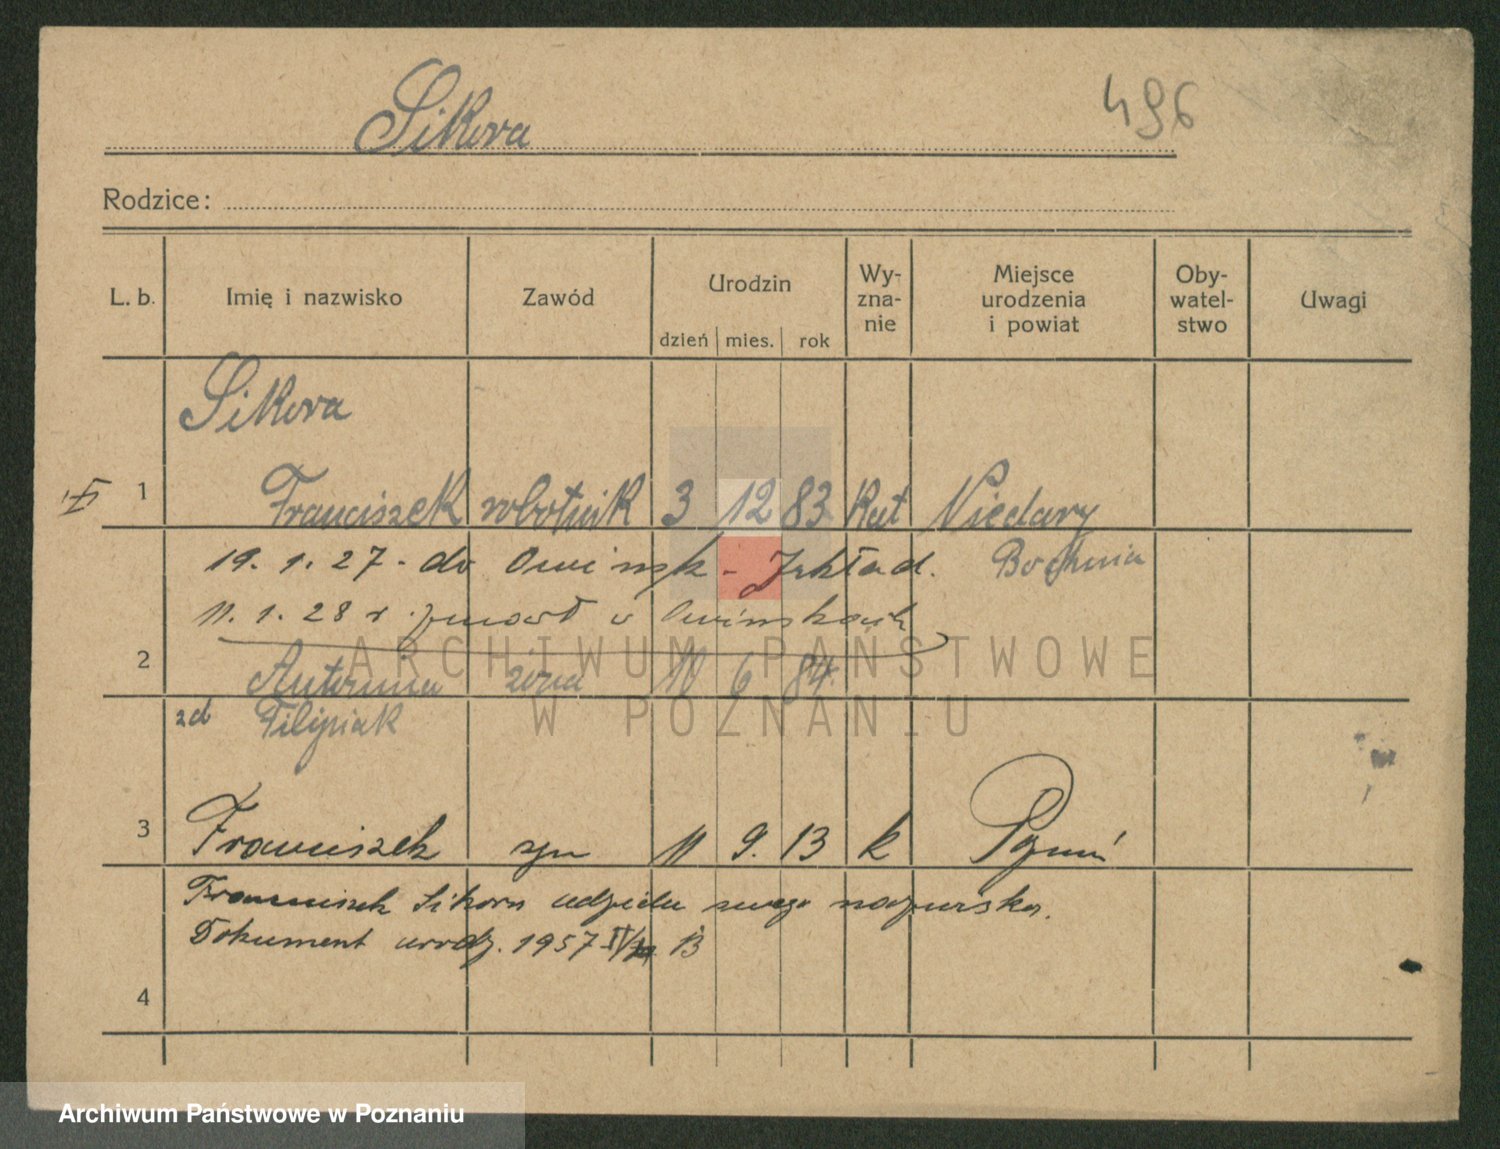 Sikora
496
Rodzice:
L. b. Imię i nazwisko Zawód Urodzin dzień mies. rok Wy-zna-nie Miejsce urodzenia i powiat Oby-watel-stwo Uwagi
Sikora
1 Franciszek robotnik 3 12 83 Kat Niedary
19.1.27 - do Owińsk - Zakład. Bochnia
11.1.28 r. zmarł w Owińskach
2 Antonina żona 10 6 84.
zd Filipiak
3 Franciszek syn 11 9. 13 k Pozna
Franciszek Sikora udziela swego nazwiska.
Dokument urodz. 1957 II/ 13
4
ARCHIWUM PAŃSTWOWE
W POZNANIU
Archiwum Państwowe w Poznaniu